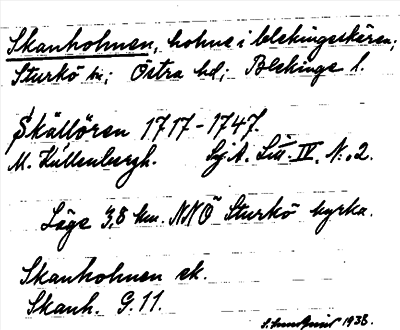 Skanholmen, holme i blekingeskären;
Sturkö sn; Östra hd; Blekinge l.
Skällören 1717-1747.
M. Küllenbergh. Sj A. Litt. IV. N:o 2.
Läge 3,8 km. NNO Sturkö kyrka.
Skanholmen ek.
Skanh. G. 11.
1938.